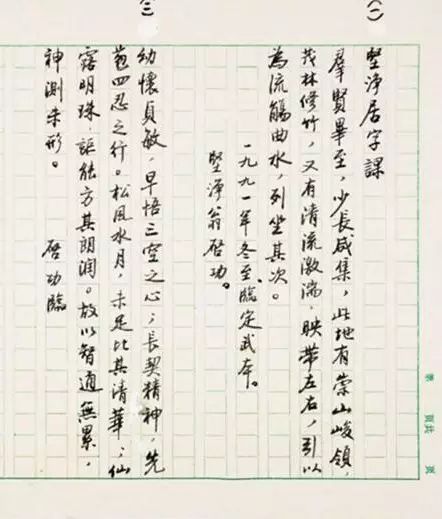 (一)
堅淨居字課
羣賢畢至,少長咸集,此地有崇山峻領,
茂林修竹,又有清流激湍,映帶左右,引以
為流觴曲水,列坐其次。
一九九一年冬至,臨定武本。
堅淨翁啓功。
(三)
幼懷貞敏,早悟三空之心;長契精神,先
苞四忍之行。松風水月,未足比其清華;仙
露明珠,詎能方其朗潤。故以智通無累,
神測未形。 啓功臨
第 頁共 頁